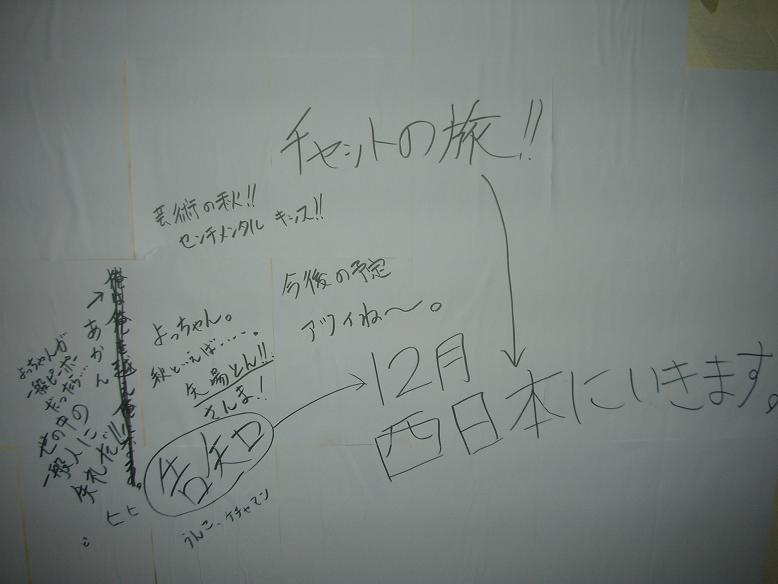 チャットの旅!!
芸術の秋!!
センチメンタル キッス!!
今後の予定
アツイね〜。
よっちゃん。
秋といえば・・・・。
矢場とん!!
さんま!
告知
12月
西日本にいきます。
うんこ、ケチャマン
あかん
よっちゃんが
一般ピーポー
だったら…
世の中の
一般人に
失礼だ!!
ヒヒ